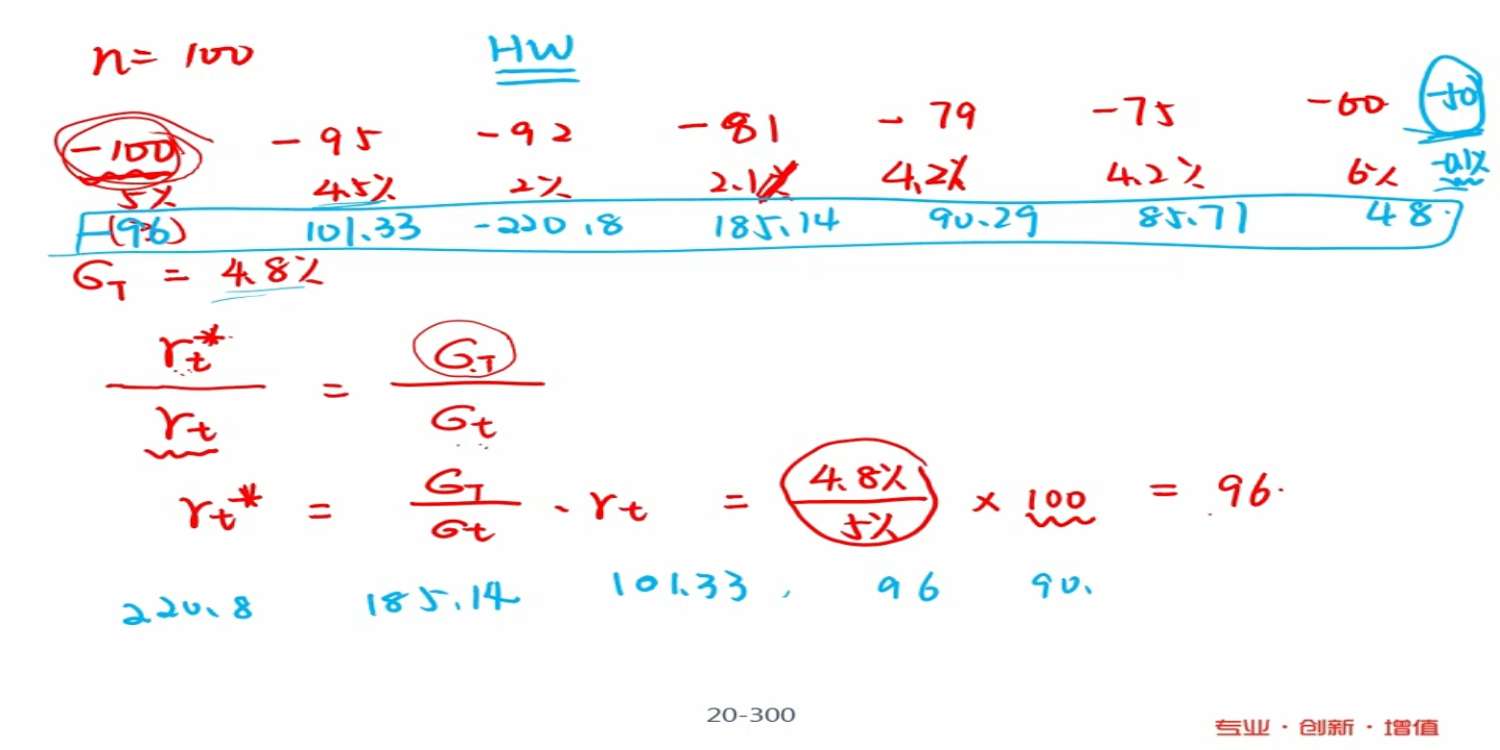 n= 100 HW
-100 -95 -92 -81 -79 -75 -60 -50
5% 4.5% 2% 2.1% 4.2% 4.2% 6% -0.1%
-(96) 101.33 -220.8 185.14 90.29 85.71 48.
σT = 4.8%
rt* / rt = σT / σt
rt* = σT / σt · rt = 4.8% / 5% × 100 = 96.
220.8 185.14 101.33, 96 90.
20-300
专业·创新·增值